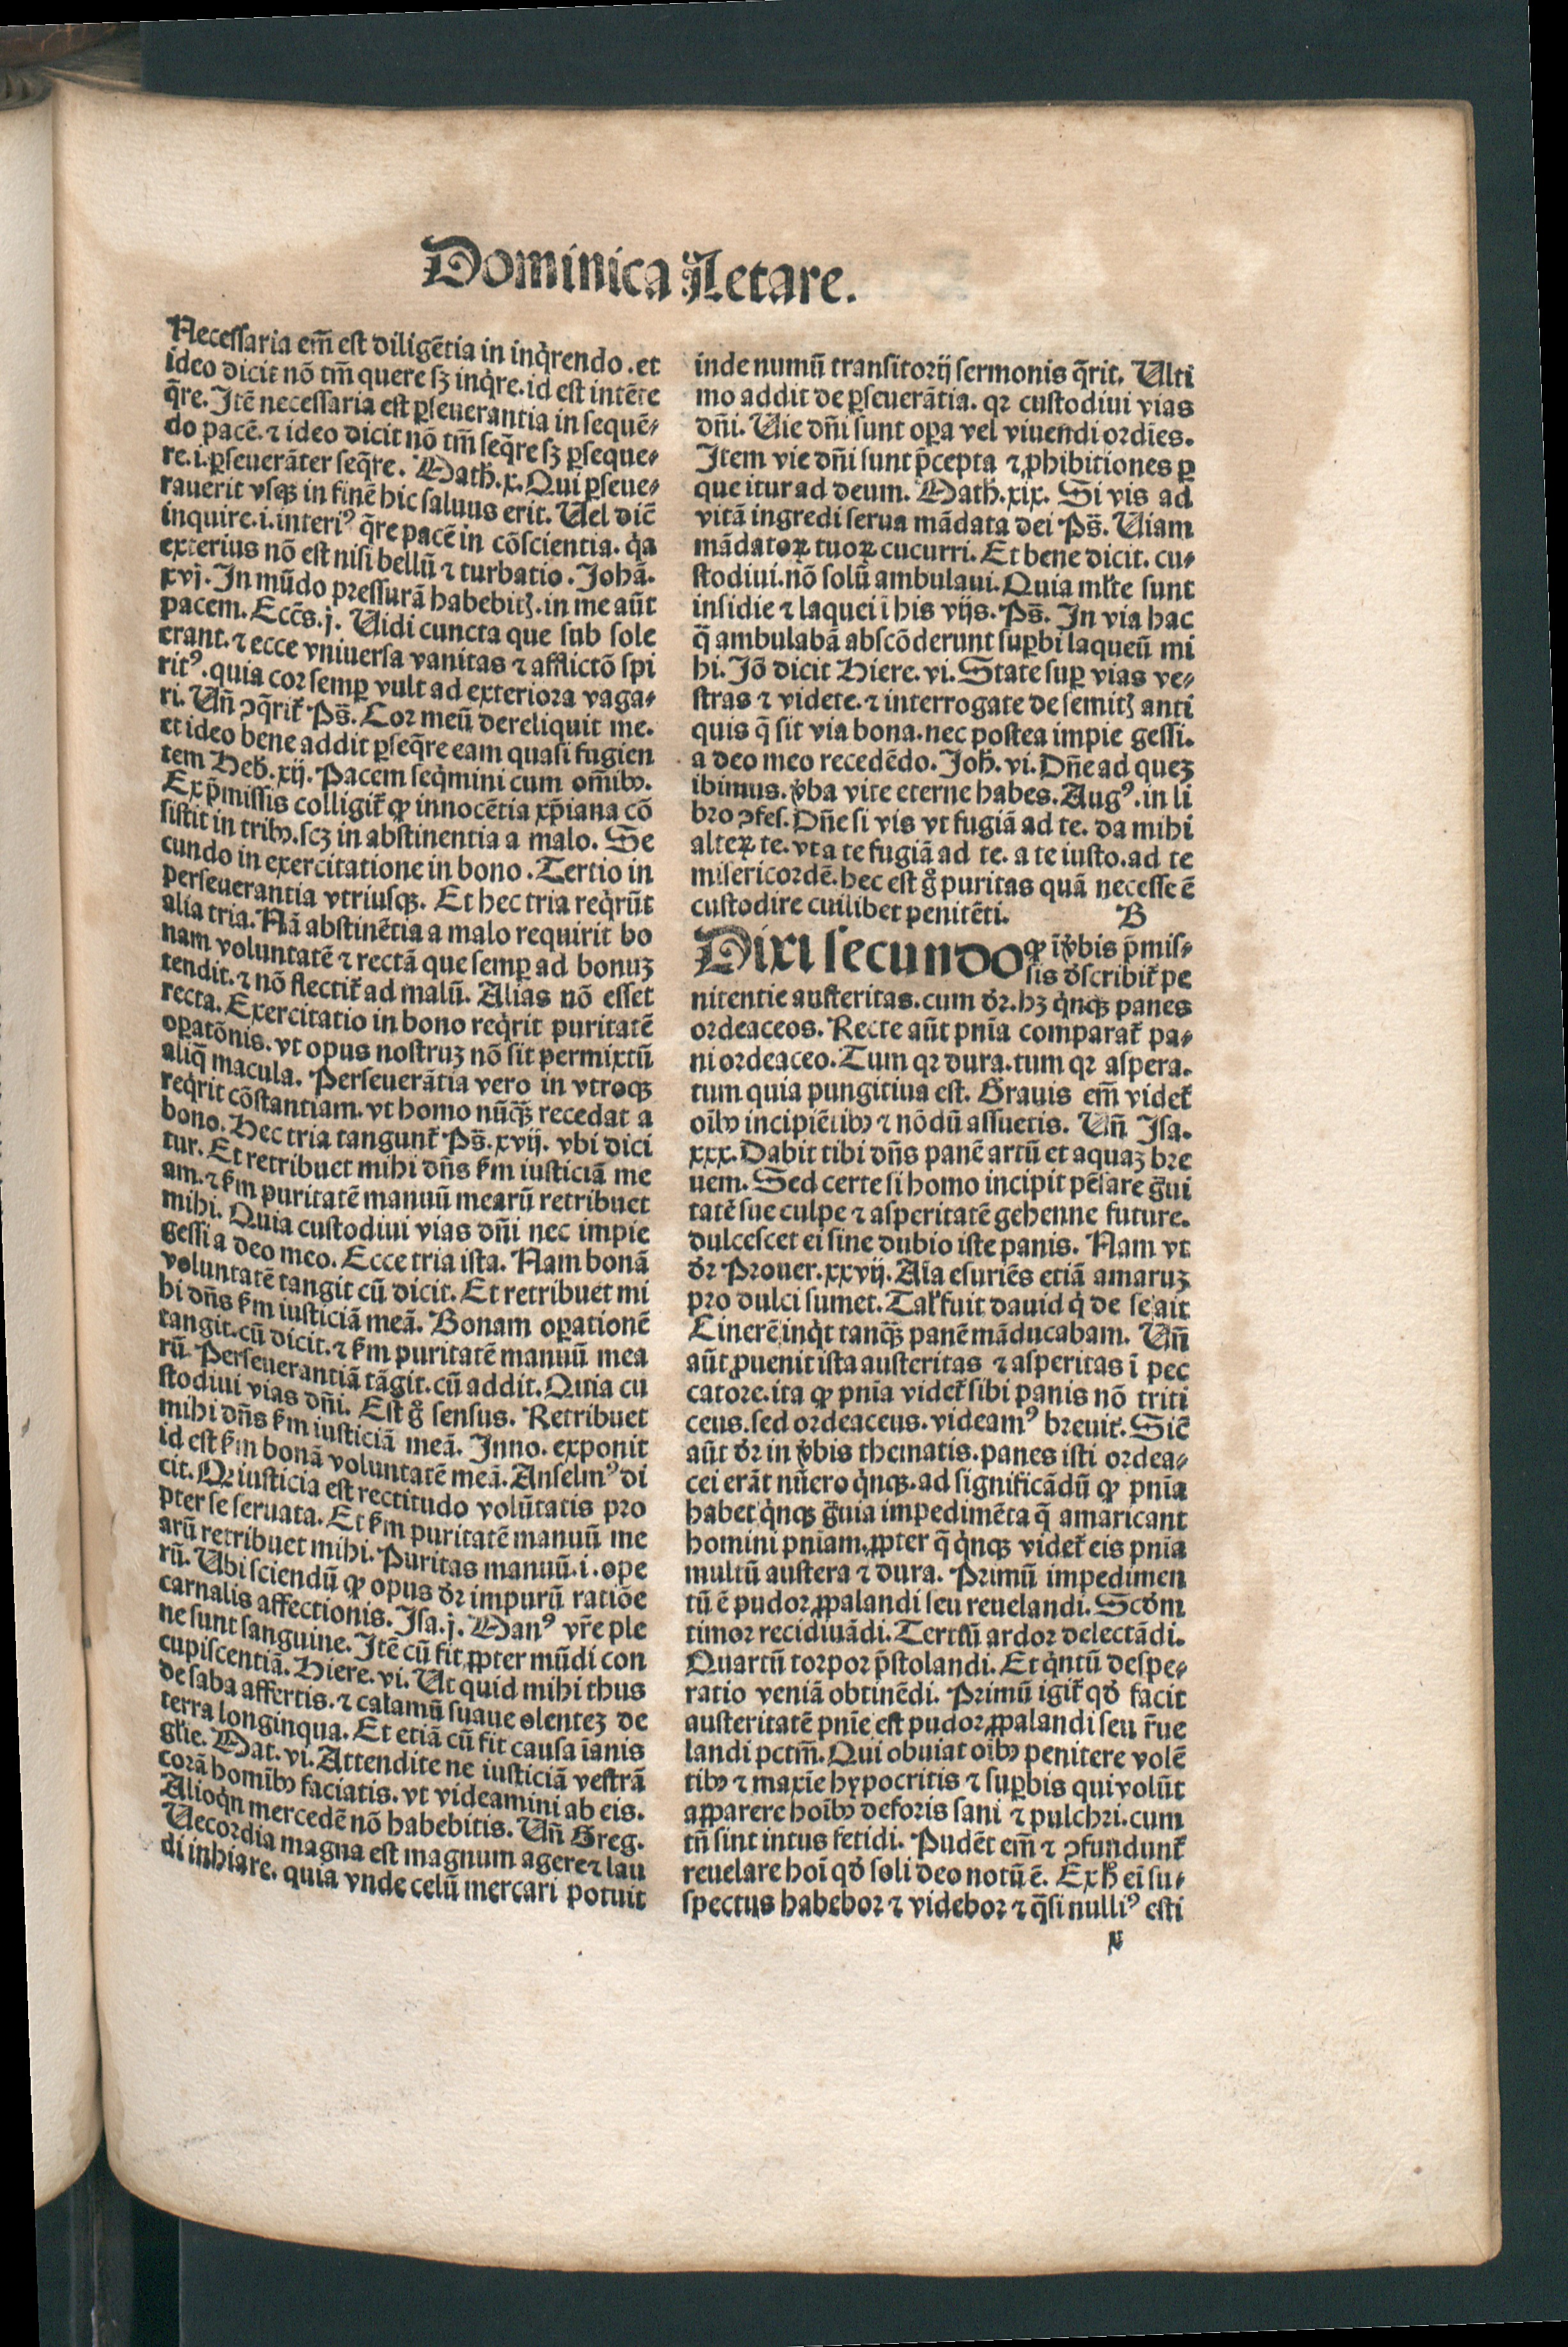 Dominica Letare.
Necessaria em̄ est diligētia in inq̇rendo. et
ideo dicit nō tm̄ quere sꝫ inq̇re. id est intēte
q̄re. Itē necessaria est ꝑseuerantia in sequē⸗
do pacē. ⁊ ideo dicit nō tm̄ seq̄re sꝫ ꝑseque⸗
re. i. ꝑseuerāter seq̄re. Math̄. x. Qui ꝑseue⸗
rauerit vsqꝫ in finē hic saluus erit. Uel dic̄
inquire. i. interiꝰ q̄re pacē in cōscientia. q̇a
exterius nō est nisi bellū ⁊ turbatio. Johā.
xvj. In mūdo pressurā habebitꝭ. in me aūt
pacem. Eccs̄. j. Uidi cuncta que sub sole
erant. ⁊ ecce vniuersa vanitas ⁊ afflictō spi
ritꝰ. quia cor semꝑ vult ad exteriora vaga⸗
ri. Un̄ ꝯq̄rit᷑ Ps̄. Cor meū dereliquit me.
et ideo bene addit ꝑseq̄re eam quasi fugien
tem Heb̄. xij. Pacem seq̇mini cum om̄ibꝰ.
Ex p̄missis colligit᷑ ꝙ innocētia xp̄iana cō
sistit in tribꝰ. scꝫ in abstinentia a malo. Se
cundo in exercitatione in bono. Tertio in
perseuerantia vtriusqꝫ. Et hec tria req̇rūt
alia tria. Nā abstinētia a malo requirit bo
nam voluntatē ⁊ rectā que semꝑ ad bonuꝫ
tendit. ⁊ nō flectit᷑ ad malū. Alias nō esset
recta. Exercitatio in bono req̇rit puritatē
oꝑatōnis. vt opus nostruꝫ nō sit permixtū
aliq̄ macula. Perseuerātia vero in vtroqꝫ
req̇rit cōstantiam. vt homo nūq̄ꝫ recedat a
bono. Hec tria tangunt᷑ Ps̄. xvij. vbi dici
tur. Et retribuet mihi dn̄s ẜm iusticiā me
am. ⁊ ẜm puritatē manuū mearū retribuet
mihi. Quia custodiui vias dn̄i nec impie
gessi a deo meo. Ecce tria ista. Nam bonā
voluntatē tangit cū dicit. Et retribuet mi
hi dn̄s ẜm iusticiā meā. Bonam oꝑationē
tangit. cū dicit. ⁊ ẜm puritatē manuū mea
rū. Perseuerantiā tāgit. cū addit. Quia cu
stodiui vias dn̄i. Est gͦ sensus. Retribuet
mihi dn̄s ẜm iusticiā meā. Inno. exponit
id est ẜm bonā voluntatē meā. Anselmꝰ di
cit. Qꝛ iusticia est rectitudo volūtatis pro
pter se seruata. Et ẜm puritatē manuū me
arū retribuet mihi. Puritas manuū. i. ope
rū. Ubi sciendū ꝙ opus dꝛ̄ impurū ratiōe
carnalis affectionis. Isa. j. Manꝰ vr̄e ple
ne sunt sanguine. Itē cū fit ꝓpter mūdi con
cupiscentiā. Hiere. vi. Ut quid mihi thus
de saba affertis. ⁊ calamū suaue olenteꝫ de
terra longinqua. Et etiā cū fit causa īanis
gl̄ie. Mat. vi. Attendite ne iusticiā vestrā
corā homībꝰ faciatis. vt videamini ab eis.
Alioq̇n mercedē nō habebitis. Un̄ Greg.
Uecordia magna est magnum agere ⁊ lau
di inhiare. quia vnde celū mercari potuit
inde numū transitorij sermonis q̄rit. Ulti
mo addit de ꝑseuerātia. qꝛ custodiui vias
dn̄i. Uie dn̄i sunt oꝑa vel viuendi ordīes.
Item vie dn̄i sunt p̄cepta ⁊ ꝓhibitiones ꝑ
que itur ad deum. Math̄. xix. Si vis ad
vitā ingredi serua mādata dei Ps̄. Uiam
mādatoꝝ tuoꝝ cucurri. Et bene dicit. cu⸗
stodiui. nō solū ambulaui. Quia ml̄te sunt
insidie ⁊ laquei ī his vijs. Ps̄. In via hac
q̄ ambulabā abscōderunt suꝑbi laqueū mi
hi. Jō dicit Hiere. vi. State suꝑ vias ve⸗
stras ⁊ videte. ⁊ interrogate de semitꝭ anti
quis q̄ sit via bona. nec postea impie gessi.
a deo meo recedēdo. Joh̄. vi. Dn̄e ad queꝫ
ibimus. v̄ba vite eterne habes. Augꝰ. in li
bro ꝯfes. Dn̄e si vis vt fugiā ad te. da mihi
alteꝝ te. vt a te fugiā ad te. a te iusto. ad te
misericordē. hec est gͦ puritas quā necesse ē
custodire cuilibet penitēti. B
Dixi secundo ꝙ ī v̄bis p̄mis⸗
sis d̄scribit᷑ pe
nitentie austeritas. cum dꝛ̄. hꝫ q̇nqꝫ panes
ordeaceos. Recte aūt pn̄ia comparat᷑ pa⸗
ni ordeaceo. Tum qꝛ dura. tum qꝛ aspera.
tum quia pungitiua est. Grauis em̄ videt᷑
oībꝰ incipiētibꝰ ⁊ nōdū assuetis. Un̄ Isa.
xxx. Dabit tibi dn̄s panē artū et aquaꝫ bre
uem. Sed certe si homo incipit pēsare g̅ui
tatē sue culpe ⁊ asperitatē gehenne future.
dulcescet ei sine dubio iste panis. Nam vt
dꝛ̄ Prouer. xxvij. Aīa esuriēs etiā amaruꝫ
pro dulci sumet. Tal᷑ fuit dauid q̇ de se ait
Cinerē inq̇t tanq̄ꝫ panē māducabam. Un̄
aūt ꝓuenit ista austeritas ⁊ asperitas ī pec
catore. ita ꝙ pn̄ia videt᷑ sibi panis nō triti
ceus. sed ordeaceus. videamꝰ breuit᷑. Sic̄
aūt dꝛ̄ in v̄bis thematis. panes isti ordea⸗
cei erāt nūero q̇nqꝫ. ad significādū ꝙ pn̄ia
habet q̇nqꝫ g̅uia impedimēta q̄ amaricant
homini pn̄iam. ꝓpter q̄ q̇nqꝫ videt᷑ eis pn̄ia
multū austera ⁊ dura. Primū impedimen
tū ē pudor ꝓpalandi seu reuelandi. Scd̄m
timor recidiuādi. Tertiū ardor delectādi.
Quartū torpor p̄stolandi. Et q̇ntū despe⸗
ratio veniā obtinēdi. Primū igit᷑ qd̄ facit
austeritatē pn̄ie est pudor ꝓpalandi seu r̄ue
landi pctm̄. Qui obuiat oībꝰ penitere volē
tibꝰ ⁊ maxīe hypocritis ⁊ suꝑbis qui volūt
apparere hoībꝰ deforis sani ⁊ pulchri. cum
tn̄ sint intus fetidi. Pudēt em̄ ⁊ ꝯfundunt᷑
reuelare hoī qd̄ soli deo notū ē. Ex hͦ ei su⸗
spectus habebor ⁊ videbor ⁊ q̄si nulliꝰ esti
x